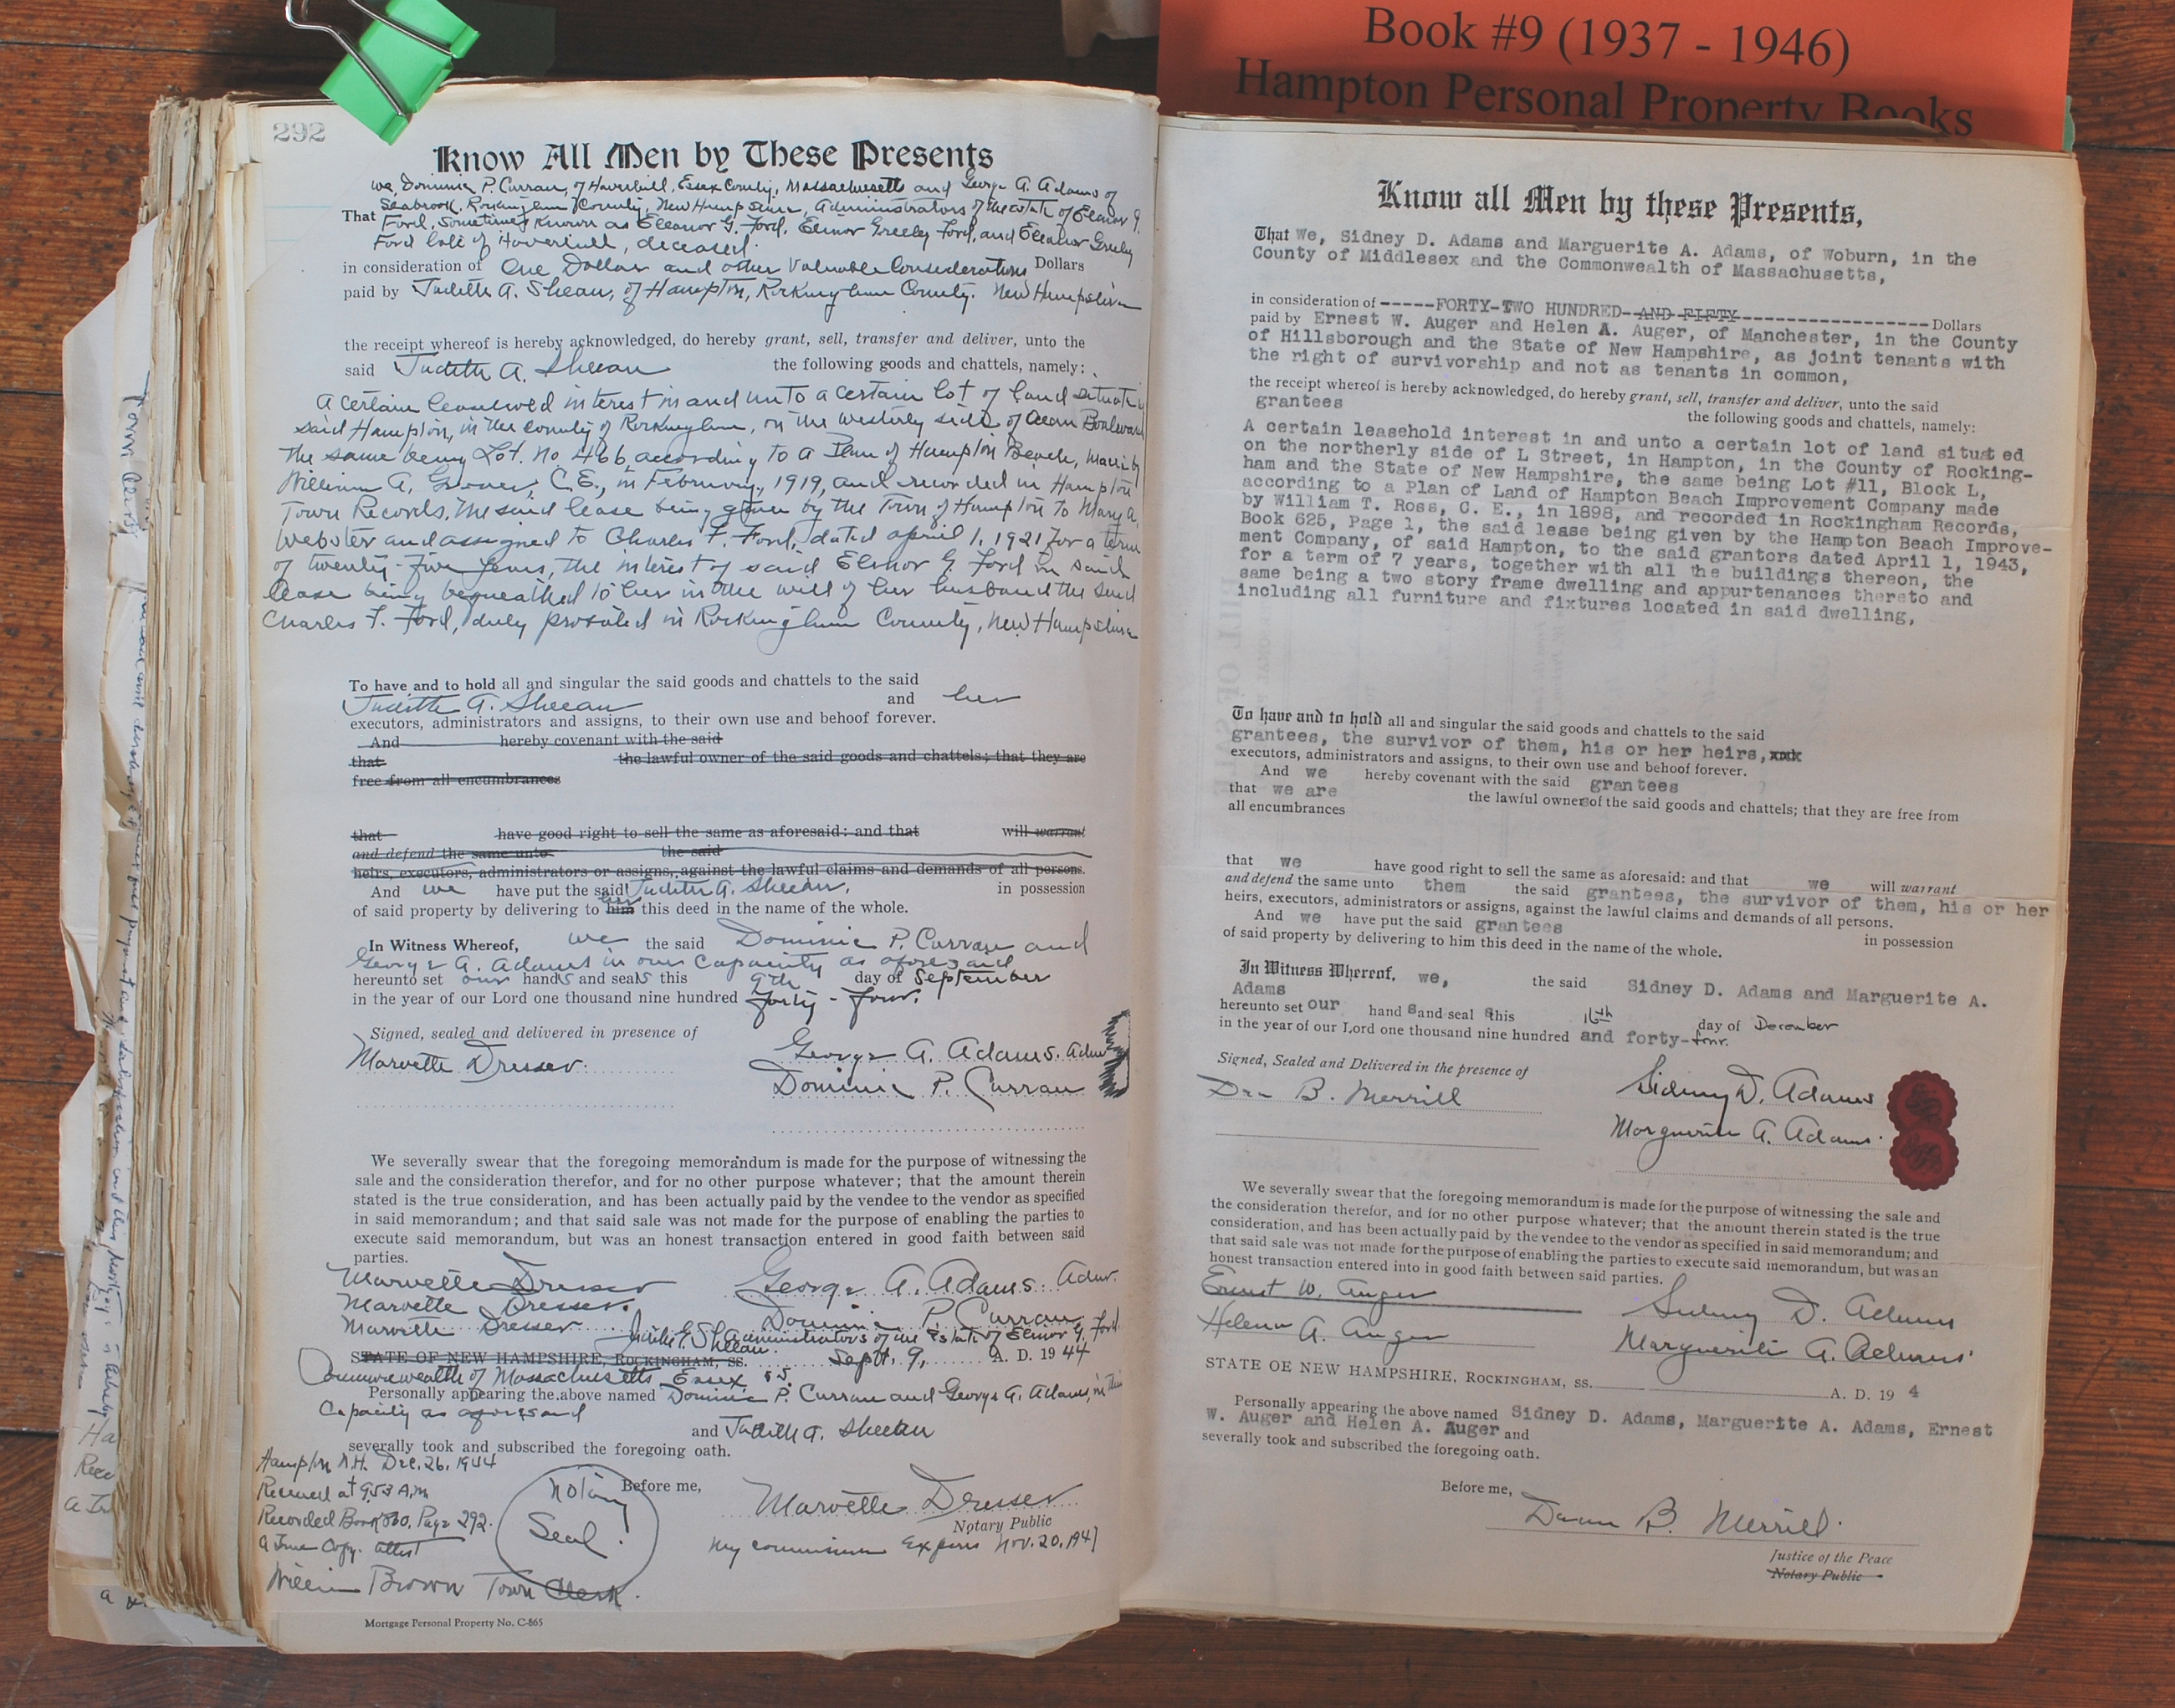 Book #9 (1937 - 1946)
Hampton Personal Property Books
292
Know All Men by These Presents
we, Dominic P. Curran, of Haverhill, Essex County, Massachusetts and George A. Adams of
Seabrook, Rockingham County, New Hampshire, Administrators of the estate of Elenor G.
That Ford, Sometimes Known as Eleanor G. Ford, Elenor Greeley Ford, and Eleanor Greeley
Ford late of Haverhill, deceased.
in consideration of One Dollar and other Valuable Considerations Dollars
paid by Judith A. Sheean, of Hampton, Rockingham County. New Hampshire
the receipt whereof is hereby acknowledged, do hereby grant, sell, transfer and deliver, unto the
said Judith A. Sheean the following goods and chattels, namely:
A certain leasehold interest in and unto a certain lot of land situate in
said Hampton, in the county of Rockingham, on the westerly side of Ocean Boulevard
the same being Lot. No 466, according to a Plan of Hampton Beach, Made by
William A. Grover, C.E., in February, 1919, and recorded in Hampton
Town Records, the said lease being given by the Town of Hampton to Mary A.
Webster and assigned to Charles F. Ford, dated april 1, 1921 for a term
of twenty-five years, the interest of said Elenor G. Ford in said
lease being bequeathed to her in the will of her husband the said
Charles F. Ford, duly probated in Rockingham County, New Hampshire
To have and to hold all and singular the said goods and chattels to the said
Judith A. Sheean and her
executors, administrators and assigns, to their own use and behoof forever.
And hereby covenant with the said
that the lawful owner of the said goods and chattels; that they are
free from all encumbrances
that have good right to sell the same as aforesaid: and that will warrant
and defend the same unto the said
heirs, executors, administrators or assigns, against the lawful claims and demands of all persons.
And we have put the said Judith A. Sheean, in possession
of said property by delivering to him her this deed in the name of the whole.
In Witness Whereof, we the said Dominic P. Curran and
George A. Adams in our Capacity as aforesaid
hereunto set our hands and seals this 9th day of September
in the year of our Lord one thousand nine hundred forty-four.
Signed, sealed and delivered in presence of
Marvette Dresser. George A. Adams. Admr
Dominic P. Curran
We severally swear that the foregoing memorandum is made for the purpose of witnessing the
sale and the consideration therefor, and for no other purpose whatever; that the amount therein
stated is the true consideration, and has been actually paid by the vendee to the vendor as specified
in said memorandum; and that said sale was not made for the purpose of enabling the parties to
execute said memorandum, but was an honest transaction entered in good faith between said
parties.
Marvette Dresser George A. Adams. Admr.
Marvette Dresser. Dominic P. Curran
Marvette Dresser Administrators of the Estate of Elenor G. Ford
Sheean.
STATE OF NEW HAMPSHIRE, ROCKINGHAM, SS. Sept. 9, A. D. 1944
Commonwealth of Massachusetts Essex ss.
Personally appearing the above named Dominic P. Curran and George A. Adams, in their
Capacity as aforesaid
and Judith A. Sheean
severally took and subscribed the foregoing oath.
Hampton N.H. Dec. 26, 1944
Received at 9.53 A.M
Recorded Book Page 292.
A True Copy. attest
William Brown Town Clerk.
Notary
Seal.
Before me,
Marvette Dresser
Notary Public
My commission Expires Nov. 20, 1947
Mortgage Personal Property No. C-865
Know all Men by these Presents,
That We, Sidney D. Adams and Marguerite A. Adams, of Woburn, in the
County of Middlesex and the Commonwealth of Massachusetts,
in consideration of -----FORTY-TWO HUNDRED--AND FIFTY-------------------- Dollars
paid by Ernest W. Auger and Helen A. Auger, of Manchester, in the County
of Hillsborough and the State of New Hampshire, as joint tenants with
the right of survivorship and not as tenants in common,
the receipt whereof is hereby acknowledged, do hereby grant, sell, transfer and deliver, unto the said
grantees the following goods and chattels, namely:
A certain leasehold interest in and unto a certain lot of land situated
on the northerly side of L Street, in Hampton, in the County of Rocking-
ham and the State of New Hampshire, the same being Lot #11, Block L,
according to a Plan of Land of Hampton Beach Improvement Company made
by William T. Ross, C. E., in 1898, and recorded in Rockingham Records,
Book 625, Page 1, the said lease being given by the Hampton Beach Improve-
ment Company, of said Hampton, to the said grantors dated April 1, 1943,
for a term of 7 years, together with all the buildings thereon, the
same being a two story frame dwelling and appurtenances thereto and
including all furniture and fixtures located in said dwelling,
To have and to hold all and singular the said goods and chattels to the said
grantees, the survivor of them, his or her heirs, xxxx
executors, administrators and assigns, to their own use and behoof forever.
And we hereby covenant with the said grantees
that we are the lawful owners of the said goods and chattels; that they are free from
all encumbrances
that we have good right to sell the same as aforesaid: and that we will warrant
and defend the same unto them the said grantees, the survivor of them, his or her
heirs, executors, administrators or assigns, against the lawful claims and demands of all persons.
And we have put the said grantees in possession
of said property by delivering to him this deed in the name of the whole.
In Witness Whereof, we, the said Sidney D. Adams and Marguerite A.
Adams
hereunto set our hand s and seal s this 16th day of December
in the year of our Lord one thousand nine hundred and forty-four.
Signed, Sealed and Delivered in the presence of
B. Merrill Sidney D. Adams
Marguerite A. Adams.
We severally swear that the foregoing memorandum is made for the purpose of witnessing the sale and
the consideration therefor, and for no other purpose whatever; that the amount therein stated is the true
consideration, and has been actually paid by the vendee to the vendor as specified in said memorandum; and
that said sale was not made for the purpose of enabling the parties to execute said memorandum, but was an
honest transaction entered into in good faith between said parties.
Ernest W. Auger Sidney D. Adams
Helen A. Auger Marguerite A. Adams
STATE OE NEW HAMPSHIRE, ROCKINGHAM, SS. A. D. 19 4
Personally appearing the above named Sidney D. Adams, Marguerite A. Adams, Ernest
W. Auger and Helen A. Auger and
severally took and subscribed the foregoing oath.
Before me,
B. Merrill
Justice of the Peace
Notary Public